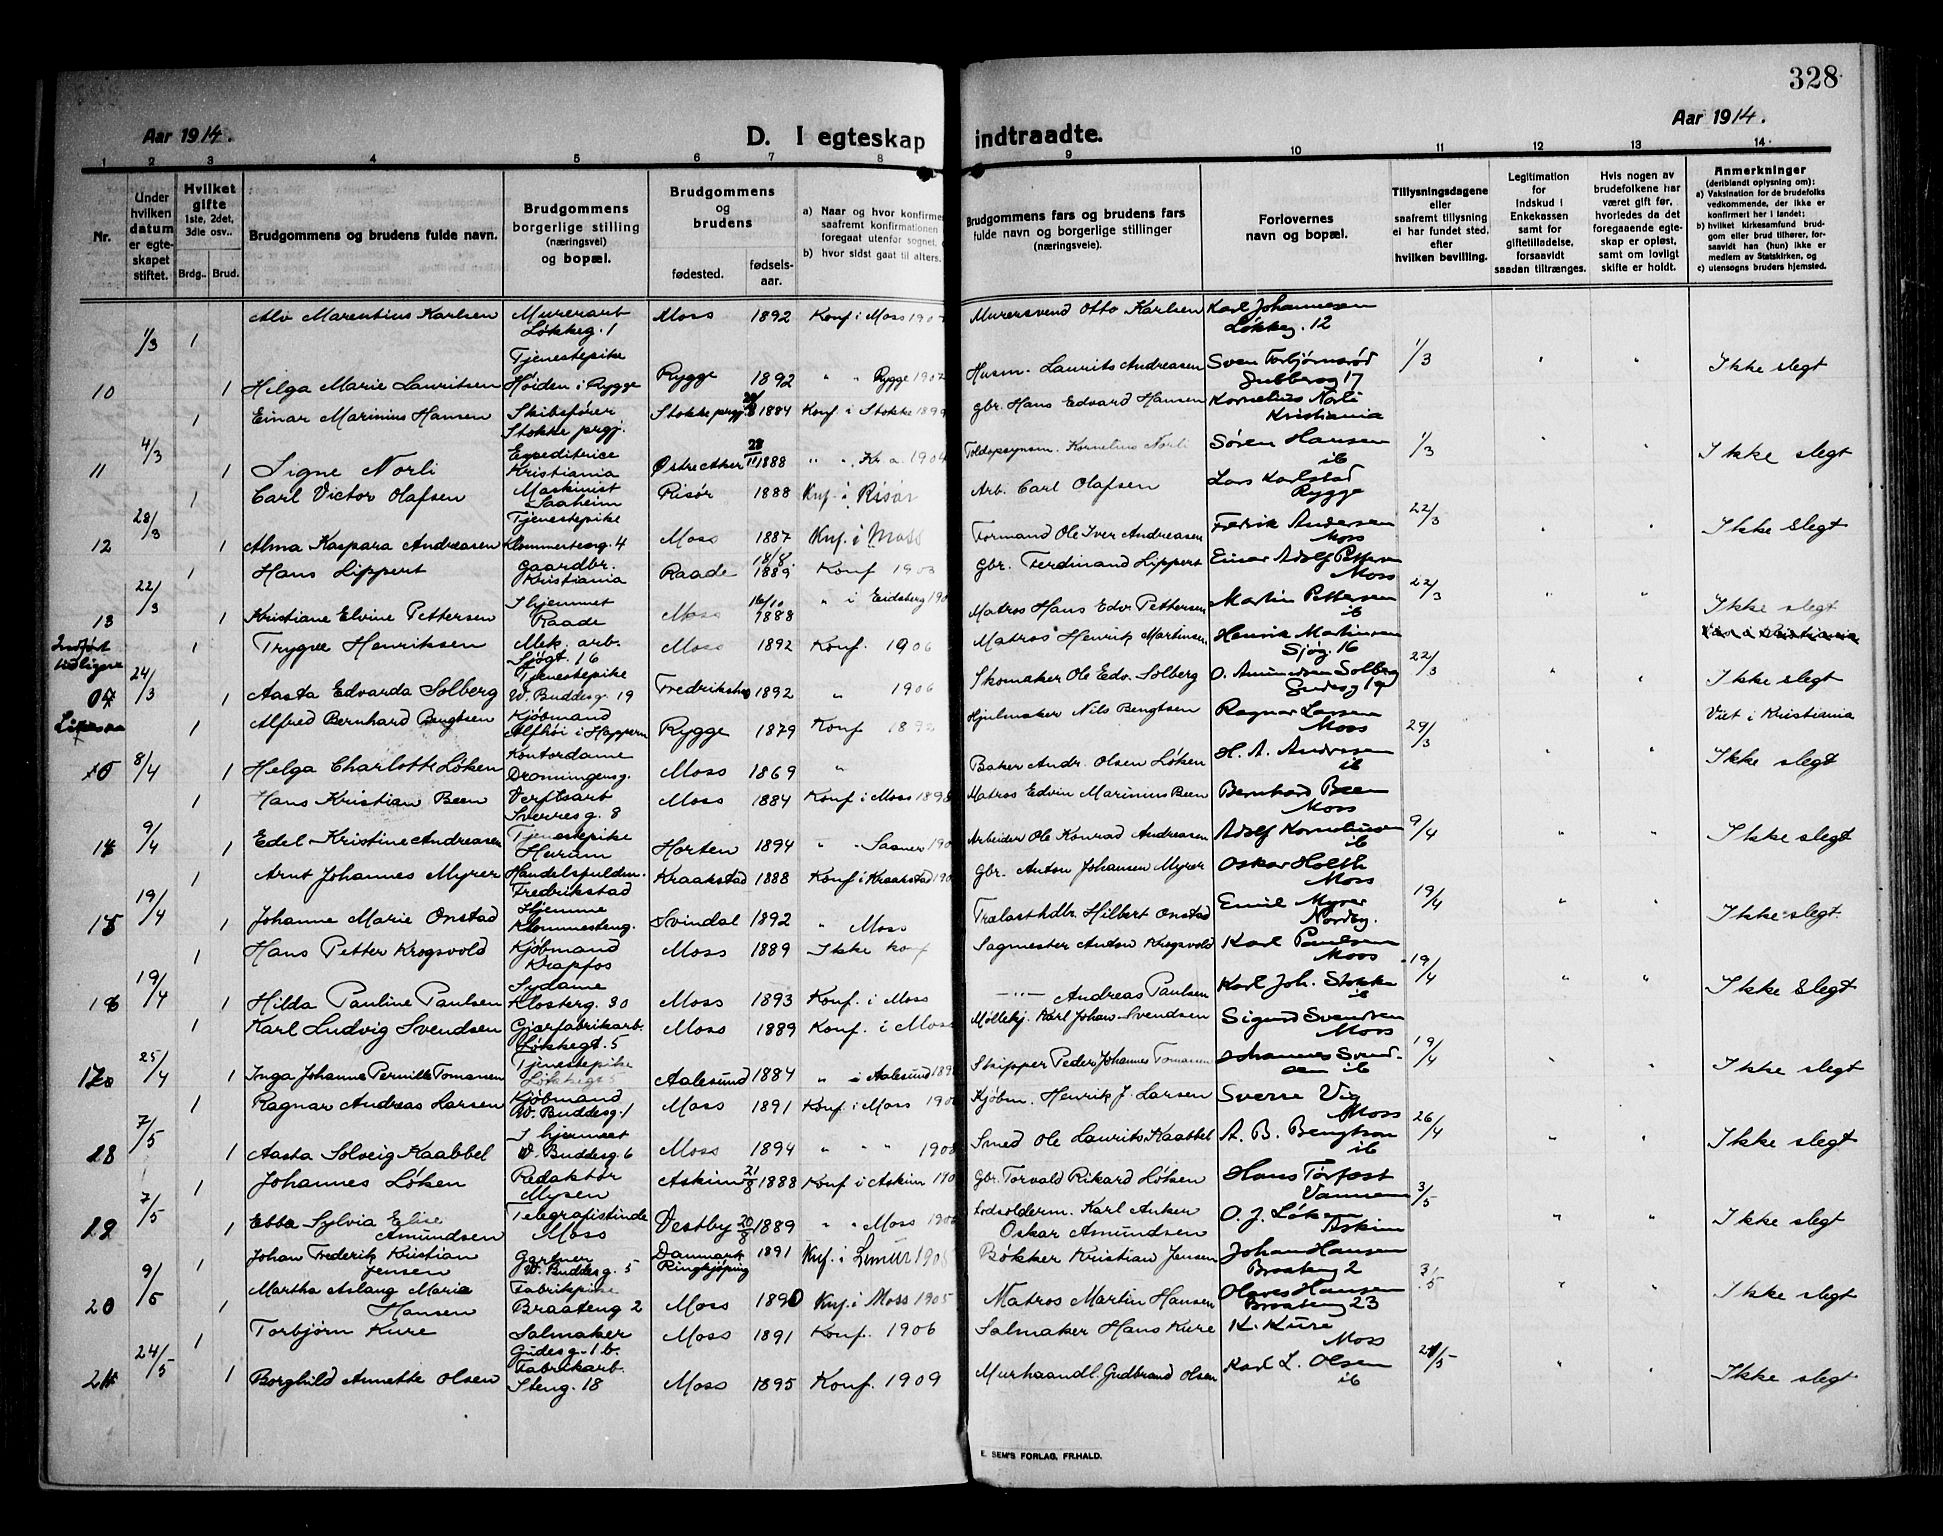 328
Aar 1914.
D. I egteskap indtraadte.
Aar 1914.
1 2 3 4 5 6 7 8 9 10 11 12 13 14
Nr.
Under hvilken datum er egteskapet stiftet.
Hvilket gifte 1ste, 2det, 3die osv..
Brdg.. Brud.
Brudgommens og brudens fulde navn.
Brudgommens borgerlige stilling (næringsvei) og bopæl.
Brudgommens og brudens
fødested.
fødselsaar.
a) Naar og hvor konfirme
saafremt konfirmationen
foregaat utenfor sognet,
b) hvor sidst gaat til alters.
Brudgommens fars og brudens fars fulde navn og borgerlige stillinger (næringsveie).
Forlovernes navn og bopæl.
Tillysningsdagene eller saafremt tillysning ei har fundet sted, efter hvilken bevilling.
Legitimation for Indskud i Enkekassen samt for giftetilladelse, forsaavidt saadan tiltrænges.
Hvis nogen av brudefolkene har været gift før, hvorledes da det foregaaende egteskap er opløst, samt om lovligt skifte er holdt.
Anmerkninger (deriblandt oplysning om):
a) Vaksination for de brudefolks vedkommende, der ikke er konfirmert her i landet;
b) hvilket kirkesamfund brudgom eller brud tilhører, forsaavidt han (hun) ikke er medlem av Statskirken, og
c) utensogns brudens hjemsted.
1/3 1 Alv Marentius Karlsen Murerarb Løkkeg. 1 Moss 1892 Konf i Moss Murersvend Otto Karlsen Karl Johannesen Løkkeg. 12
10 1 Helga Marie Lauritsen Tjenestepike Høiden i Rygge Rygge 1892 " " Rygge 1907 Husm. Laurits Andreasen Sven Torbjørnsrød 17 1/3 " " Ikke slegt
4/3 1 Einar Marinius Hansen Skibsfører Stokke prgj. Stokke prgj. 1884 Konf i Stokke 1899 gbr. Hans Edvard Hansen Kornelius Norli Kristiania
11 1 Signe Norli Expeditrise Kristiania Østre Aker 28/11 1888 " " Kr.a. 1904 Toldopsynsm. Kornelius Norli Søren Hansen ib 1/3 " " Ikke slegt
28/3 1 Carl Victor Olafsen Maskinist Saaheim Risør 1888 Knf. i Risør Arb. Carl Olafsen Lars Karlstad Rygge
12 1 Alma Kaspara Andreasen Tjenestepike 4 Moss 1887 Knf. i Moss Formand Ole Iver Andreasen Fredrik Andersen Moss 22/3 " " Ikke Slegt
22/3 1 Hans Lippert gaardbr. Kristiania Raade 18/8 1889 Konf 1903 Gbr. Ferdinand Lippert Einar Adolf Pettersen Moss
13 1 Kristiane Elvine Pettersen I hjemmet Raade Moss 16/10 1888 " i Eidsberg Matros Hans Edv. Pettersen Martin Pettersen ib 22/3 " " Ikke slegt
24/3 1 Trygve Henriksen Mek. arb. Sjøgt. 16 Moss 1892 Konf. 1906 Matros Henrik Martinsen Henrik Martinsen Sjøg. 16
1 Aasta Edvarda Solberg Tjenestepike V. Buddesg. 19 1892 " 1906 Skomaker Ole Edv. Solberg O. Amundsen Solberg 22/3 " " Ikke slegt
8/4 1 Alfred Bernhard Bengtsen Kjøbmand Rygge 1879 Konf Hjulmaker Nils Bengtsen Ragnar Larsen Moss Viet i Kristiania
1 Helga Charlotte Løken Kontordame Dronningensg. Moss 1869 " Baker Andr. Olsen Løken H. A. Andersen ib 29/3 " " Ikke slegt
9/4 1 Hans Kristian Been Verftsarb Sverresg. 8 Moss 1884 Konf i Moss Matros Edvin Marinius Been Bernhard Been Moss
1 Edel Kristine Andreasen Tjenestepike Horten 1894 Arbeider Ole Konrad Andreasen Adolf Korneliussen ib 9/4 " " Ikke slegt
19/4 1 Arnt Johannes Myrer Fredrikstad Kraakstad 1888 Konf i Kraakstad Gbr. Anton Johansen Myrer Oskar Holth Moss
15 1 Johanne Marie Onstad Hjemme Svindal 1892 " Moss Trælasthdlr. Hilbert Onstad Emil Myrer Nordby. 19/4 " " Ikke slegt
19/4 1 Hans Petter Krogsvold Kjøbmand Krapfos Moss 1889 Ikke konf Sagmester Anton Krogsvold Karl Paulsen Moss
16 1 Hilda Pauline Paulsen Sydame Klosterg. 30 Moss 1893 Konf. i Moss —"— Andreas Paulsen Karl Joh. Stokke ib 19/4 " " Ikke Slegt
25/4 1 Karl Ludvig Svendsen Løkkegt. 5 Moss 1889 Konf. i Moss Møllekj. Karl Johan Svendsen Sigurd Svendsen Moss
17 1 Inga Johanne Pernille Tomasen Tjenestepike Løkkegt 5 Aalesund 1884 " i Aalesund Skipper Peder Johannes Tomasen Johannes Svendsen ib 19/4 " " Ikke slegt
7/5 1 Ragnar Andreas Larsen Kjøbmand V. Buddesg. 1 Moss 1891 Konf. i Moss Kjøbm. Henrik J. Larsen Sverre Vig Moss
18 1 Aasta Solveig Kaabbel I hjemmet V. Buddesg. 6 Moss 1894 " " 1908 Smed Ole Laurits Kaabbel A. B. Bengtson ib 26/4 " " Ikke slegt
7/5 1 Johannes Løken Redaktør Mysen Askim 21/8 1888 Konf i Askim Gbr. Torvald Rikard Løken Hans Torfast
19 1 Ebba Sylvia Elise Amundsen Telegrafistinde Moss Vestby 20/8 1889 " " Moss Lodsolderm. Karl Anker Oskar Amundsen O. J. Løken Askim 3/5 " " Ikke slegt
9/5 1 Johan Frederik Kristian Jensen Gartner V. Buddesg. 5 Danmark Ringkjøping 1891 Knf. i Lemvir 1905 Bøkker Kristian Jensen Johan Hansen Braateng 2
20 1 Martha Aslaug Marie Hansen Fabrikpike Braateng 2 Moss 1890 Knf. i Moss 1905 Matros Martin Hansen Olaves Hansen Braateng 23 3/5 " " Ikke slegt
24/5 1 Torbjørn Kure Salmaker Gudesg. 1 b. Moss 1891 Konf. 1906 Salmaker Hans Kure K. Kure Moss
21 1 Borghild Annette Olsen Fabrikarb. Steng. 18 Moss 1895 Konf. 1909 Murhaandl. Gudbrand Olsen Karl L. Olsen ib 21/5 " " Ikke slegt
E. SEM'S FORLAG, FR.HALD.